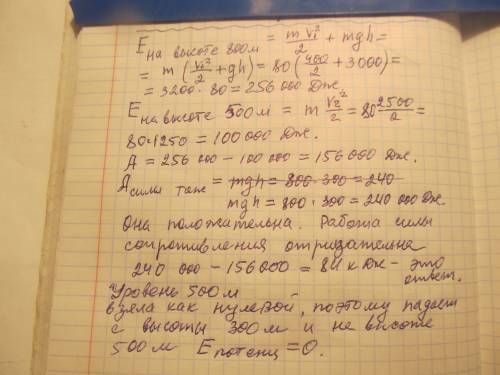 E на высоте 800м = mV₁²/2 + mgh =
= m (V₁²/2 + gh) = 80 (400/2 + 3000) =
= 3200 · 80 = 256000 Дж.
E на высоте 500м = m V₂²/2 = 80 2500/2 =
80·1250 = 100 000 Дж.
A = 256 000 - 100 000 = 156 000 Дж.
A силы тяж = mgh = 800 · 300 = 240
mgh = 800 · 300 = 240 000 Дж.
Она положительна. Работа силы
сопротивления отрицательна
240 000 - 156000 = 84 кДж - это
ответ.
Уровень 500м
взяла как нулевой, поэтому падает
с высоты 300м и на высоте
500м E потенц = 0.